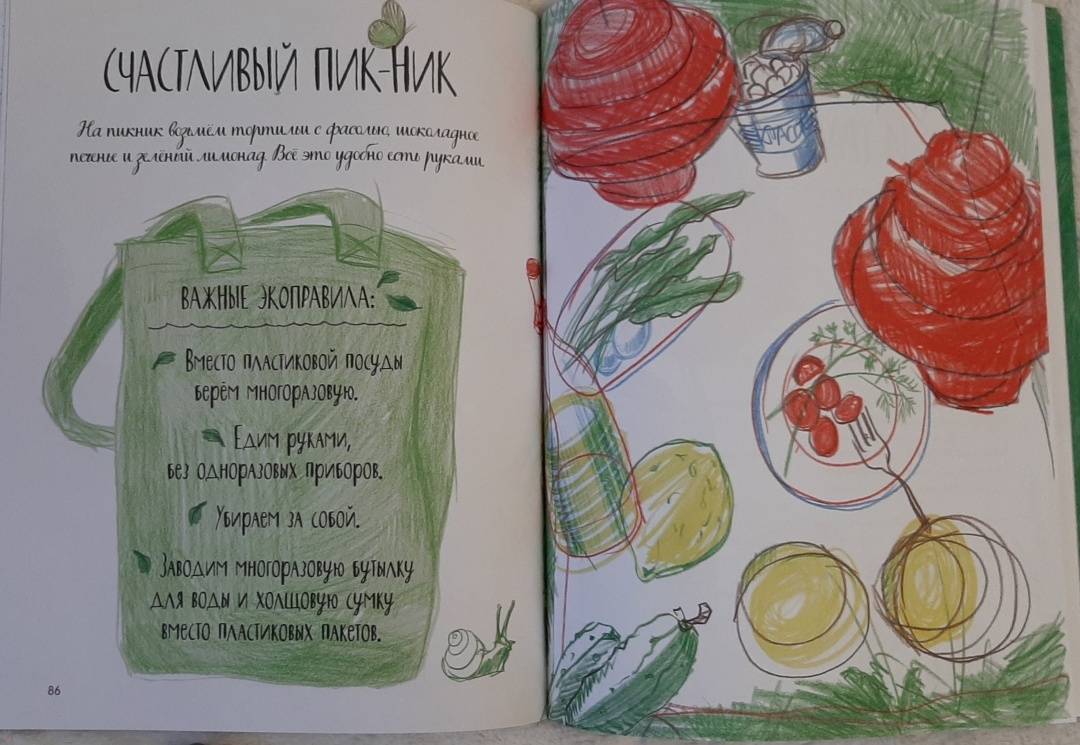 СЧАСТЛИВЫЙ ПИК-НИК
На пикник возьмём тортильи с фасолью, шоколадное
печенье и зелёный лимонад. Всё это удобно есть руками.
ВАЖНЫЕ ЭКОПРАВИЛА:
ВМЕСТО ПЛАСТИКОВОЙ ПОСУДЫ
БЕРЁМ МНОГОРАЗОВУЮ.
ЕДИМ РУКАМИ,
БЕЗ ОДНОРАЗОВЫХ ПРИБОРОВ.
УБИРАЕМ ЗА СОБОЙ.
ЗАВОДИМ МНОГОРАЗОВУЮ БУТЫЛКУ
ДЛЯ ВОДЫ И ХОЛЩОВУЮ СУМКУ
ВМЕСТО ПЛАСТИКОВЫХ ПАКЕТОВ.
86